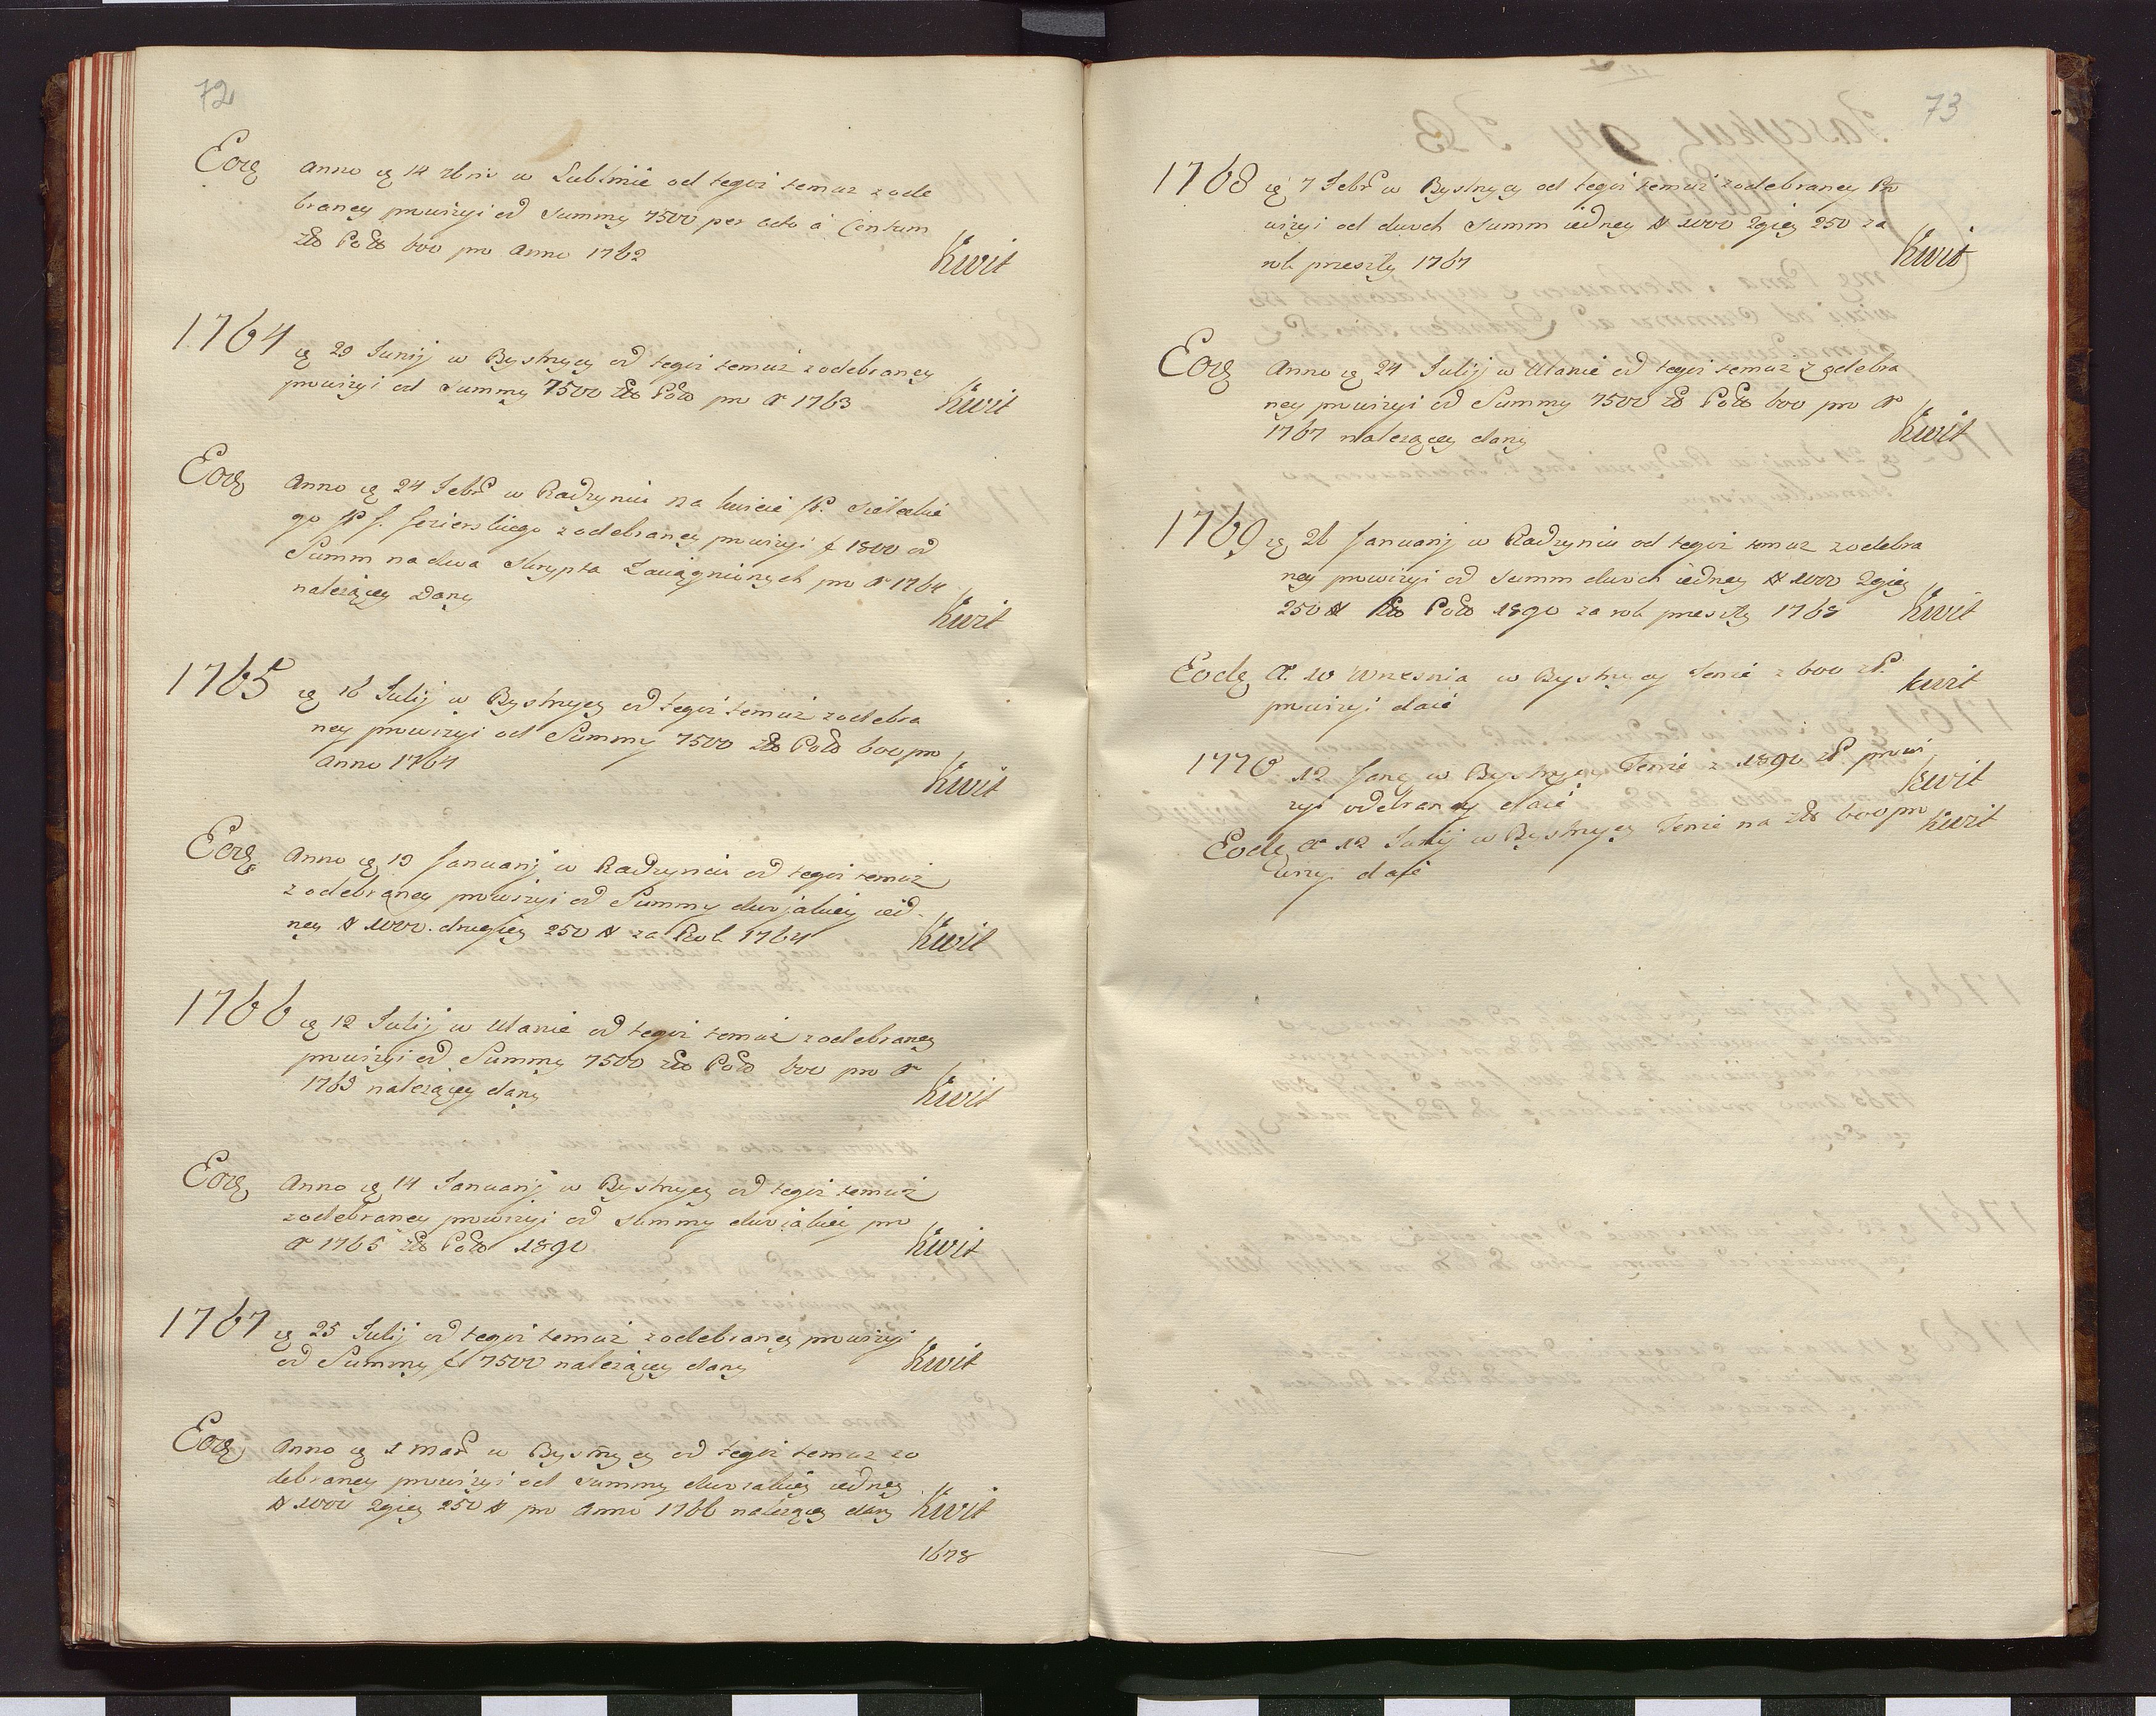 72
Eodę Anno ię 14 Xbris w Lublinie od tegoż temuż z ode
braney prowizyi od Summy 7500 per octo à Centum
Zło Polo 600 pro Anno 1762 Kwit
1764 ię 29 Junij w Bystrzycy od tegoż temuż z odebraney
prowizyi od Summy 7500 Zło Polo pro Aº 1763 Kwit
Eodę Anno ię 24 Febr w Radzyniu na kwicie JP.
go JP J. Jezierskiego z odebraney prowizyi f 1800 od
Summ na dwa skrypta zaciągnionych pro Aº 1764
należącey Dany Kwit
1765 ię 16 Julij w Bystrzycy od tegoż temuż z odebra
ney prowizyi od Summy 7500 Zło Polo 600 pro
Anno 1764 Kwit
Eodę Anno ię 19 Januarij w Radzyniu od tegoż temuż
z odebraney prowizyi od Summy dwojakiey ied-
ney # 1000. drugiey 250 # za Rok 1764 Kwit
1766 ię 12 Julij w Ulanie od tegoż temuż z odebraney
prowizyi od Summy 7500 Zło Polo 600 pro Aº
1765 należącey dany Kwit
Eodę Anno ię 14 Januarij w Bystrzycy od tegoż temuż
z odebraney prowizyi od Summy dwojakiey pro
Aº 1765 Zło Polo 1890 Kwit
1767 ię 25 Julij od tegoż temuż z odebraney prowizyi
od Summy f 7500 należącey dany Kwit
Eodę Anno ię 2 mar w Bystrzycy od tegoż temuż zo
debraney prowizyi od Summy dwojakiey iedney
# 1000 2giey 250 # pro Anno 1766 należącey dany Kwit
1678
73
1768 ię 7 Febr w Bystrzycy od tegoż temuż z odebraney Pro
wizyi od dwoch Summ iedney # 1000 2giey 250 za
rok przeszły 1767 Kwit
Eodę Anno ię 24 Julij w Ulanie od tegoż temuż z odebra
ney prowizyi od Summy 7500 Zło Polo 600 pro Aº
1767 należącey dany Kwit
1769 ię 26 Januarij w Radzyniu od tegoż temuż z odebra
ney prowizyi od Summ dwoch iedney # 1000 2giey
250 # Zło Polo 1890 za rok przeszły 1768 Kwit
Eodę Aº 10 Wrzesnia w Bystrzycy Tenże z 600 zP.
prowizyi daie kwit
1770 12 Janę w Bystrzycy Tenże z 1890 zP prowi
zyi odebraney daie kwit
Eodę Aº 12 Junij w Bystrzycy Tenże na Zło 600 pro
wizyi daie kwit